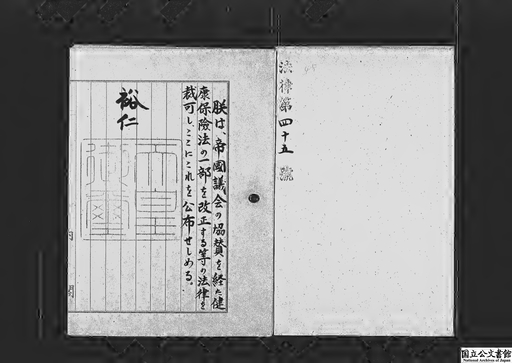 法律第四十五號
朕は、帝國議会の協賛を経た健
康保險法の一部を改正する等の法律を
裁可し、ここにこれを公布せしめる。
裕仁
天皇
御璽
内閣
国立公文書館
National Archives of Japan